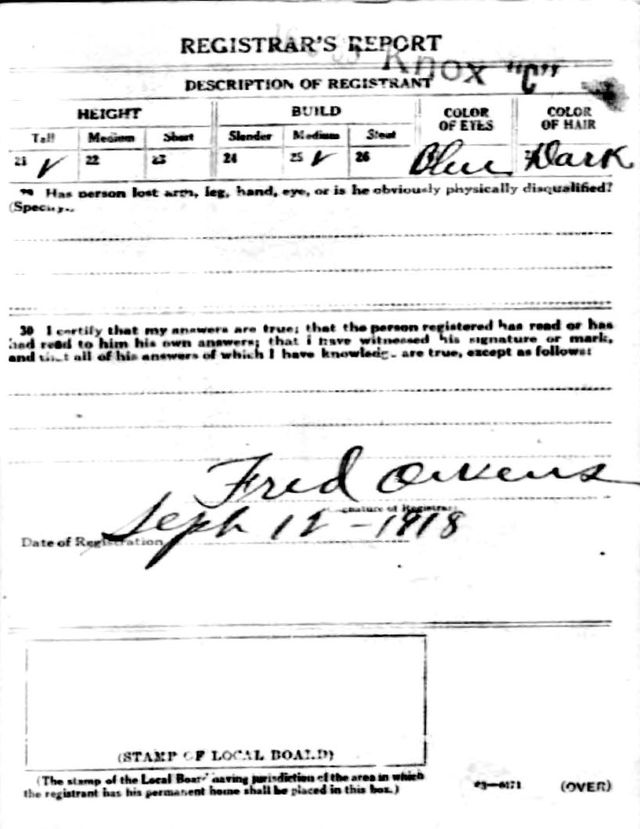 REGISTRAR'S REPORT
Knox "C"
DESCRIPTION OF REGISTRANT
HEIGHT BUILD COLOR OF EYES COLOR OF HAIR
Tall Medium Short Slender Medium Stout
21 ✓ 22 23 24 25 ✓ 26 Blue Dark
Has person lost arm, leg, hand, eye, or is he obviously physically disqualified?
(Specify.)
30 I certify that my answers are true; that the person registered has read or has
had read to him his own answers; that I have witnessed his signature or mark,
and that all of his answers of which I have knowledge are true, except as follows:
Fred
Signature of Registrar
Date of Registration Sept 12-1918
(STAMP OF LOCAL BOARD)
(The stamp of the Local Board having jurisdiction of the area in which
the registrant has his permanent home shall be placed in this box.)
03—6171 (OVER)